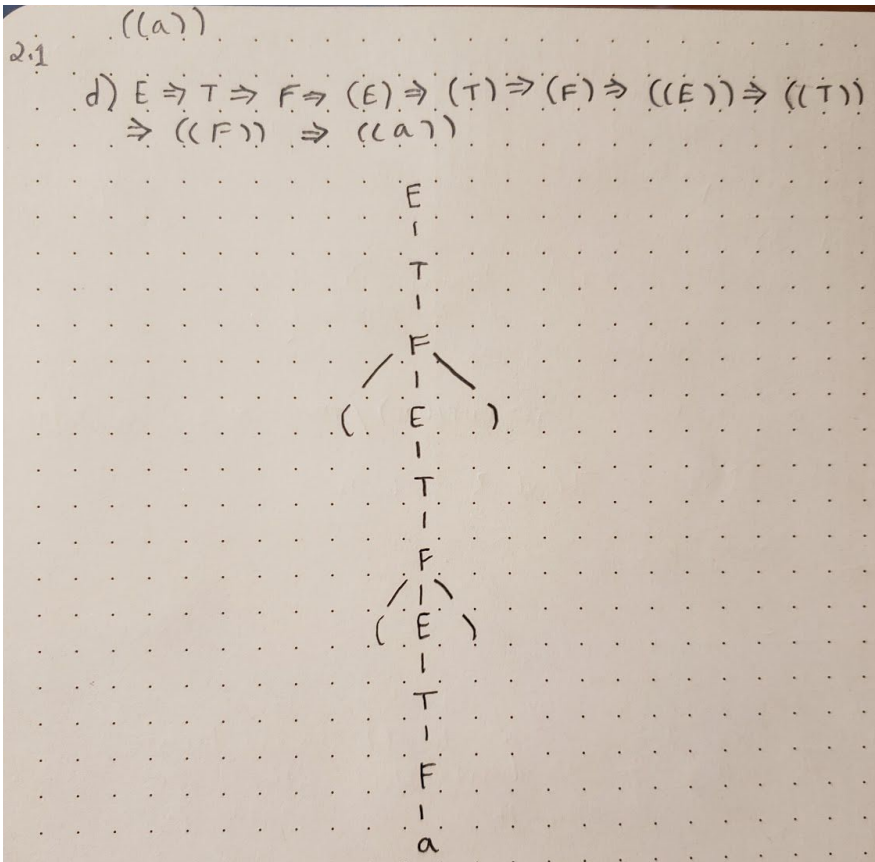 ((a))
2.1
d) E ⇒ T ⇒ F ⇒ (E) ⇒ (T) ⇒ (F) ⇒ ((E)) ⇒ ((T))
⇒ ((F)) ⇒ ((a))
E
T
F
( E )
T
F
( E )
T
F
a